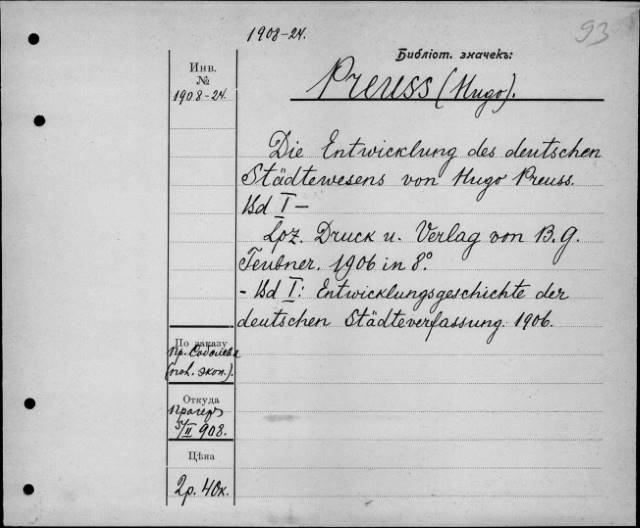 1908-24.
93
Библіот. значекъ:
Preuss (Hugo).
Инв.
№
1908-24.
Die Entwicklung des deutschen
Städtewesens von Hugo Preuss.
Bd I —
Lpz. Druck u. Verlag von B. G.
Teubner. 1906 in 8°.
- Bd I: Entwicklungsgeschichte der
deutschen Städteverfassung. 1906.
По заказу
пр. Соболева
(пол. экон.).
Откуда
Прагеръ
5/II 908.
Цѣна
2р. 40к.